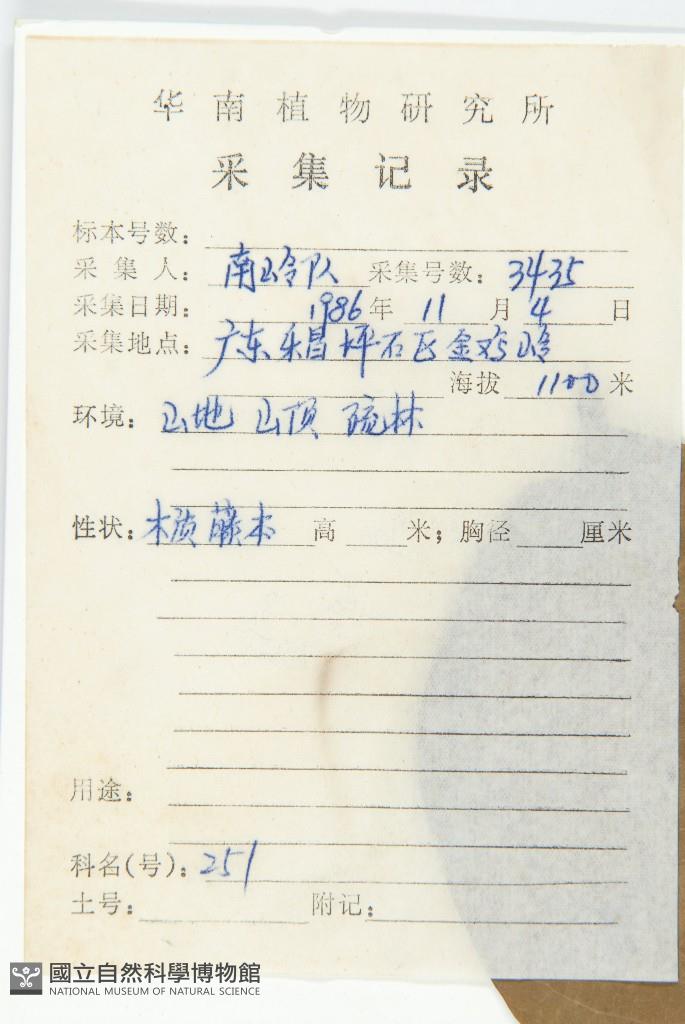 华南植物研究所
采集记录
标本号数：
采集人：南岭队 采集号数：3435
采集日期：1986年 11月 4日
采集地点：广东乐昌坪石区金鸡岭
海拔 1100米
环境：山地 山顶 疏林
性状：木质藤本 高 米；胸径 厘米
用途：
科名(号)：251
土号： 附记：
國立自然科學博物館
NATIONAL MUSEUM OF NATURAL SCIENCE